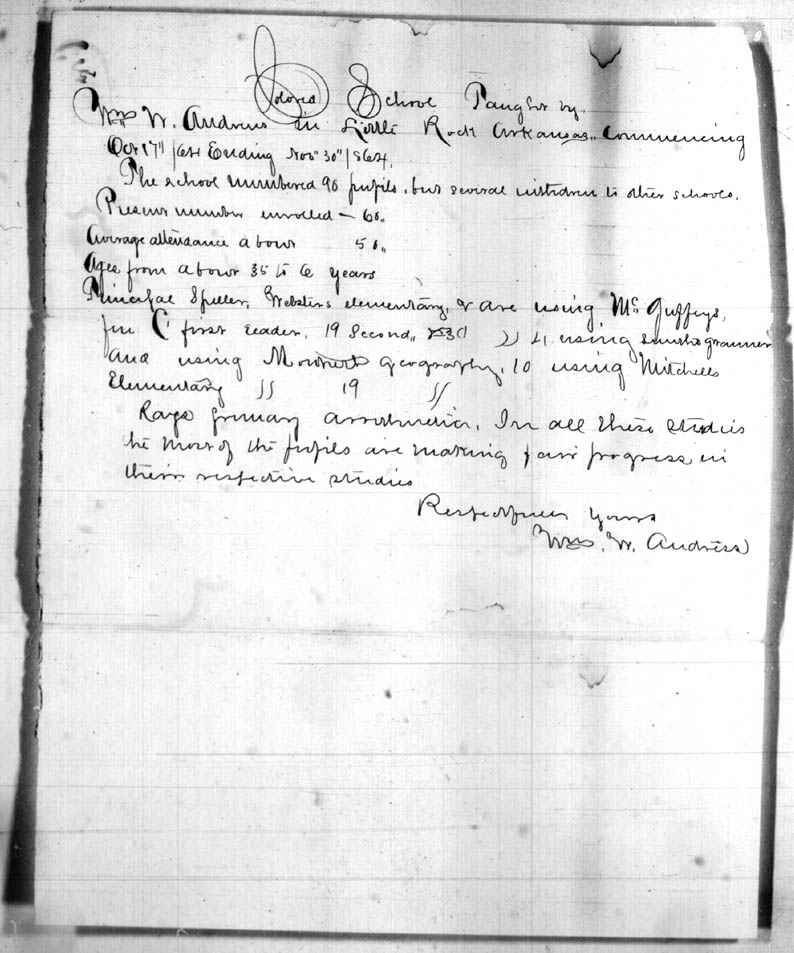 Colored School Taught by
Wm W. Andrews in Little Rock Arkansas. Commencing
Oct 17" /64 Ending Nov" 30" /1864.
The school numbered 90 pupils, but several withdrew to other schools.
Present number enrolled — 60.
Average attendance about 50.
Ages from about 35 to 6 years
Principal Speller, Websters elementary, & are using McGuffeys,
first reader, 19 Second, 4 using Smiths grammer
and using geography, 10 using Mitchells
Elementary " 19 "
Rays primary arrithmetic. In all these studies
the most of the pupils are making fair progress in
their respective studies
Respectfully Yours
Wm. W. Andrews